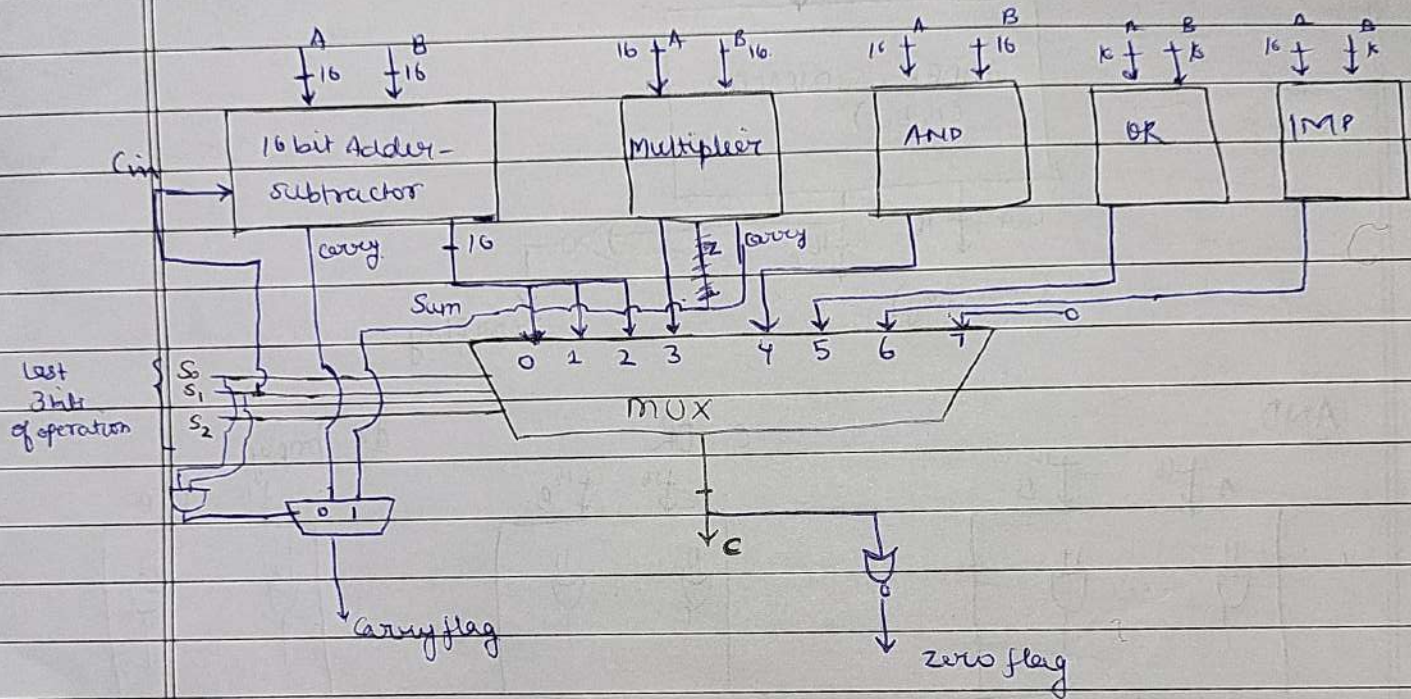 A B 16 A B 16. A B A B A B
16 16 16 16 16 16
16 bit Adder-
subtractor
Multiplier
AND
OR
IMP
Cin
carry
16
Z
carry
Sum
0
0 1 2 3 4 5 6 7
MUX
Last
3 bits
of operation
S0
S1
S2
AND
0 1
C
Carry flag
Zero flag